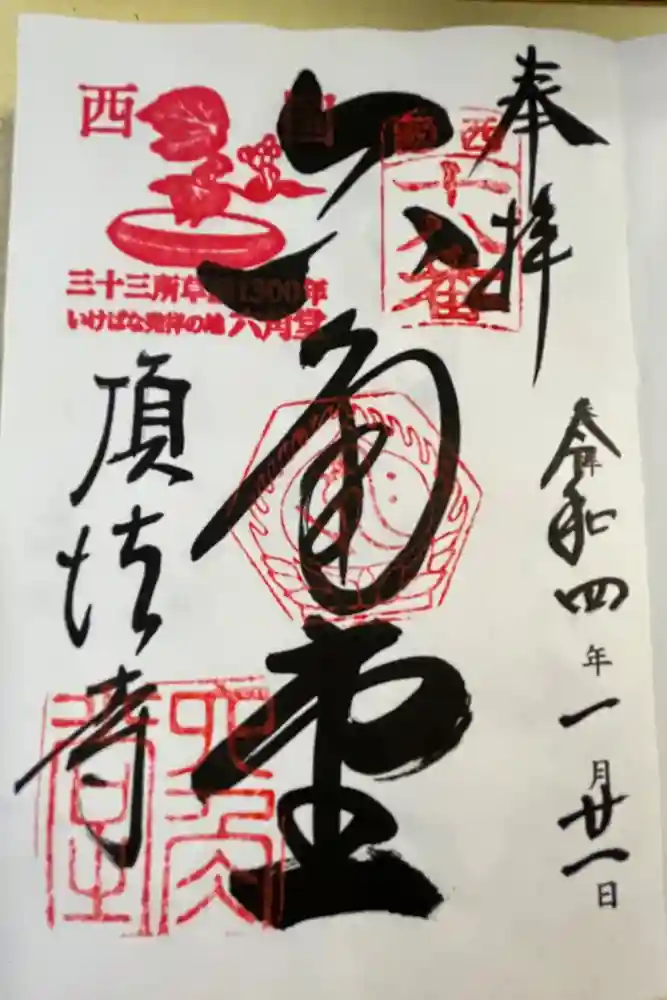 奉拝
令和四年一月廿一日
西国
十八番
六角堂
西国
三十三所草創1300年
いけばな発祥の地 六角堂
頂法寺
六角堂